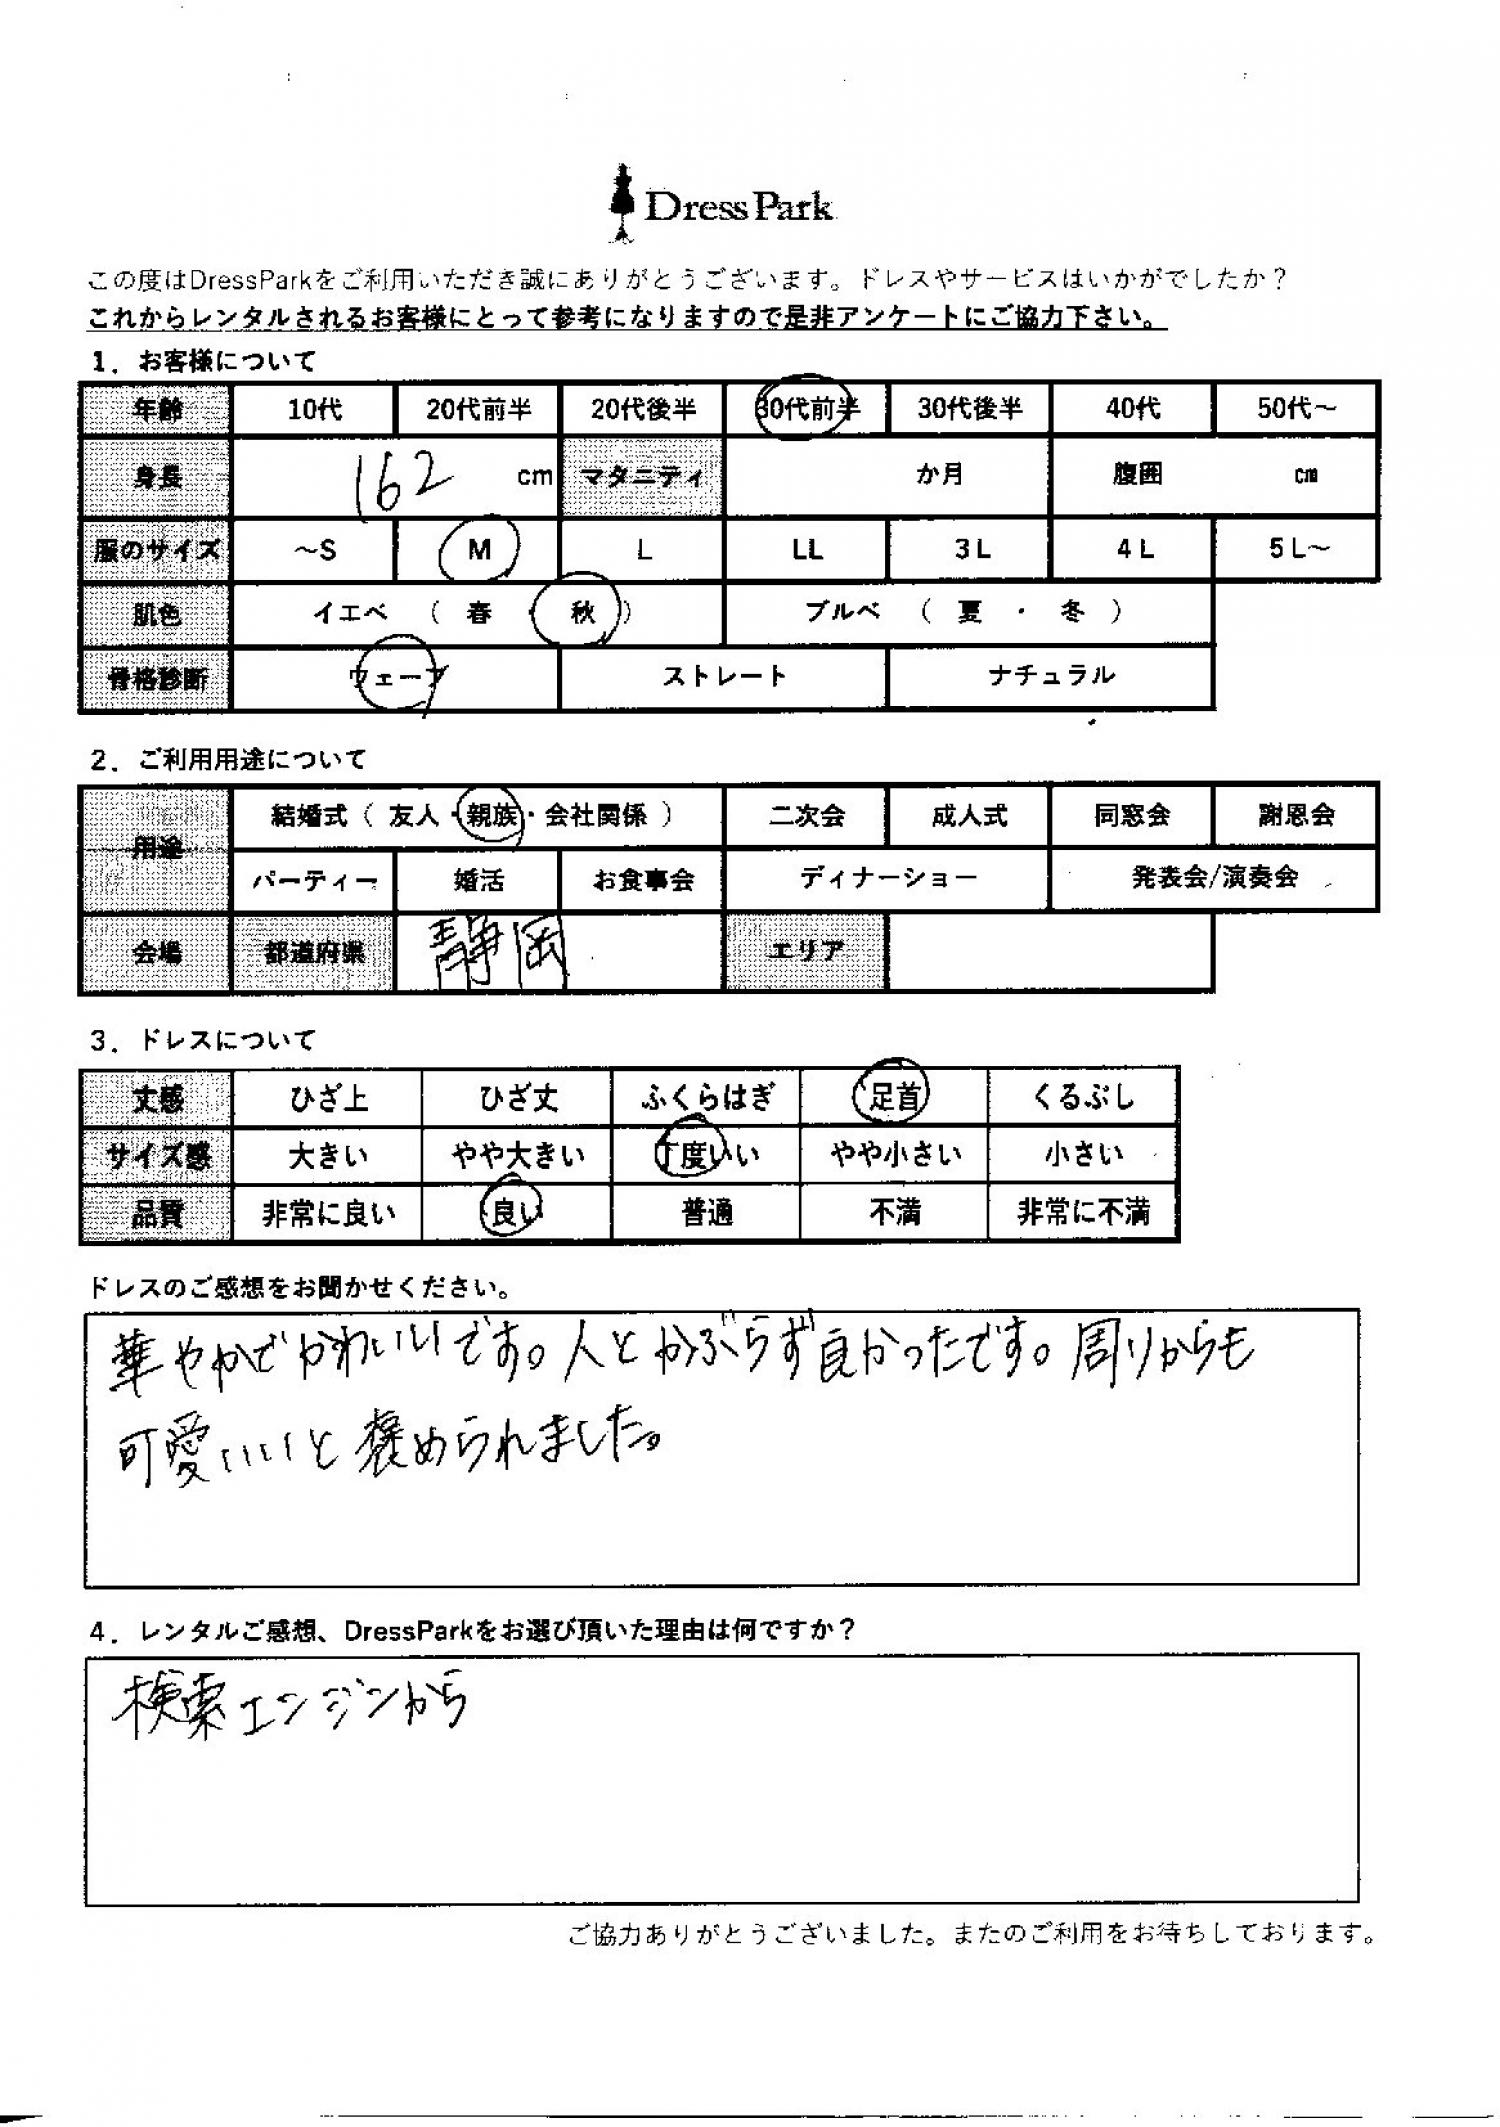 Dress Park
この度はDressParkをご利用いただき誠にありがとうございます。ドレスやサービスはいかがでしたか？
これからレンタルされるお客様にとって参考になりますので是非アンケートにご協力下さい。
1．お客様について
年齢 10代 20代前半 20代後半 30代前半 30代後半 40代 50代～
身長 162 cm マタニティ か月 腹囲 cm
服のサイズ ～S M L LL 3L 4L 5L～
肌色 イエベ （ 春 ・ 秋 ） ブルベ （ 夏 ・ 冬 ）
骨格診断 ウェーブ ストレート ナチュラル
2．ご利用用途について
用途 結婚式（ 友人・親族・会社関係 ） 二次会 成人式 同窓会 謝恩会
パーティー 婚活 お食事会 ディナーショー 発表会/演奏会
会場 都道府県 静岡 エリア
3．ドレスについて
丈感 ひざ上 ひざ丈 ふくらはぎ 足首 くるぶし
サイズ感 大きい やや大きい 丁度いい やや小さい 小さい
品質 非常に良い 良い 普通 不満 非常に不満
ドレスのご感想をお聞かせください。
華やかでかわいいです。人とかぶらず良かったです。周りからも
可愛いいと褒められました。
4．レンタルご感想、DressParkをお選び頂いた理由は何ですか？
検索エンジンから
ご協力ありがとうございました。またのご利用をお待ちしております。